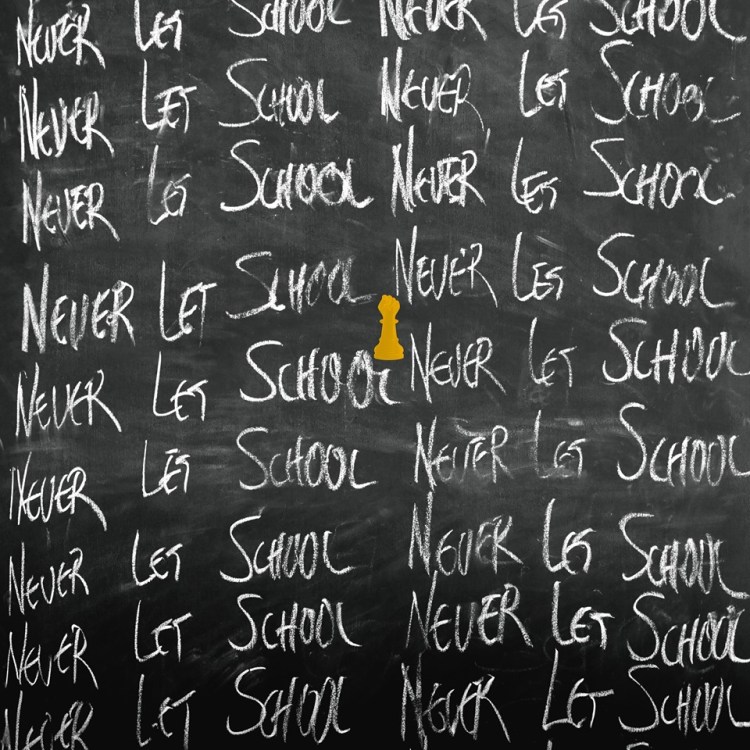 NEVER LET SCHOOL NEVER LET SCHOOL
NEVER LET SCHOOL NEVER LET SCHOOL
NEVER LET SCHOOL NEVER LET SCHOOL
NEVER LET SCHOOL NEVER LET SCHOOL
NEVER LET SCHOOL NEVER LET SCHOOL
NEVER LET SCHOOL NEVER LET SCHOOL
NEVER LET SCHOOL NEVER LET SCHOOL
NEVER LET SCHOOL NEVER LET SCHOOL
NEVER LET SCHOOL NEVER LET SCHOOL